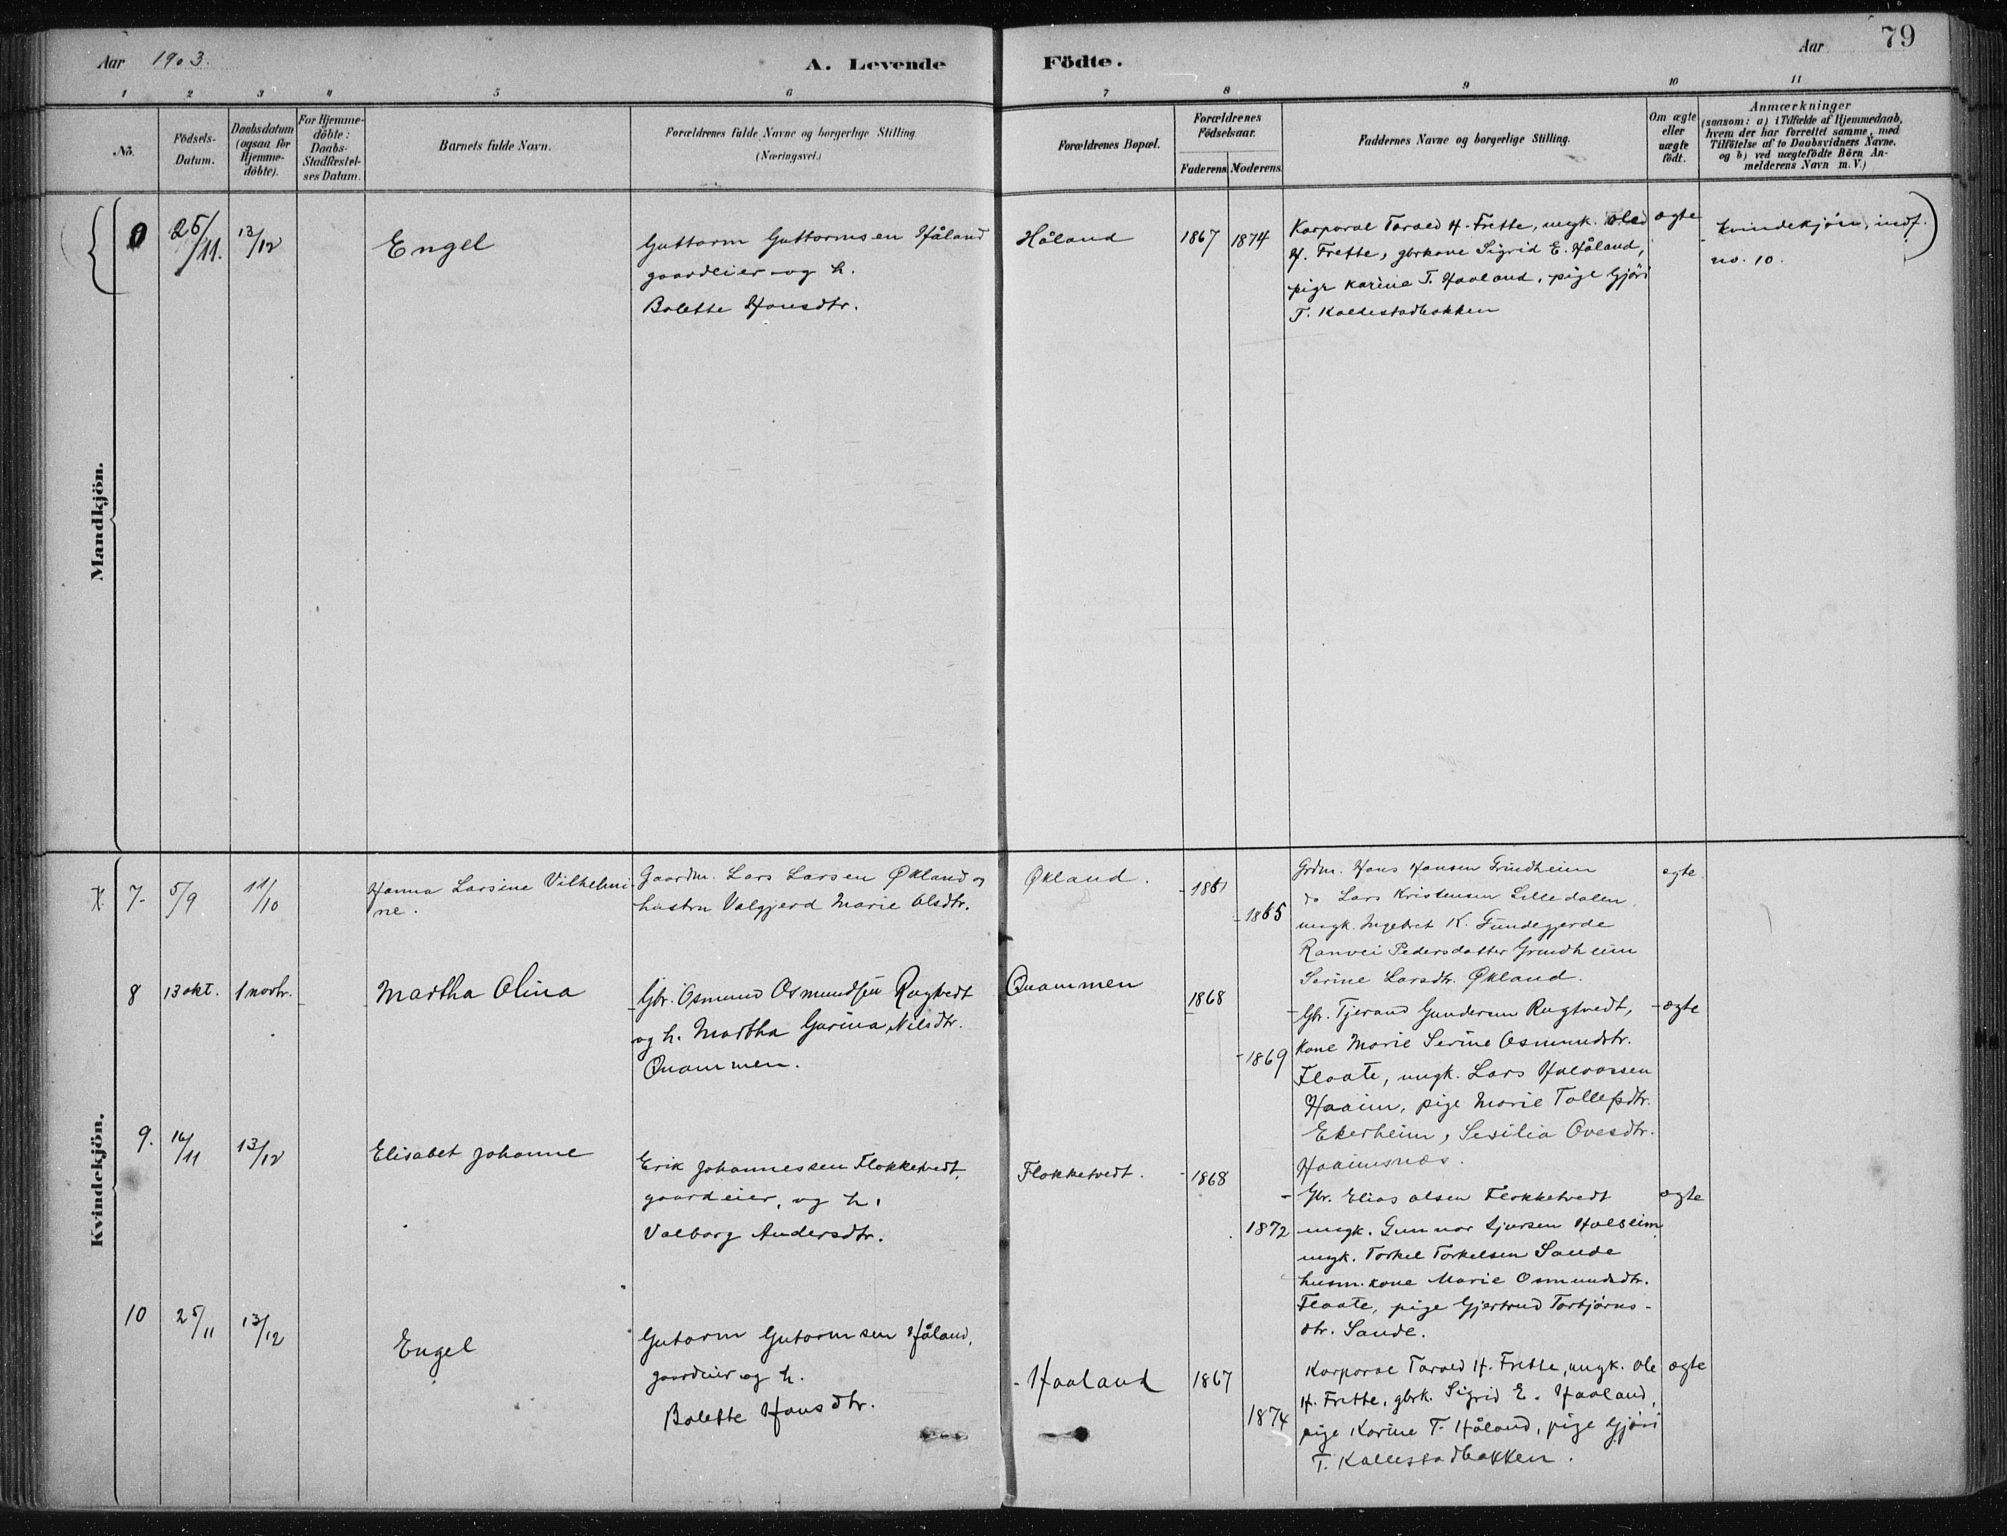 Aar 1903. A. Levende Födte. Aar 79
1 2 3 4 5 6 7 8 9 10 11
No. Födsels-Datum. Daabsdatum (ogsaa for Hjemme-döbte). For Hjemme-döbte: Daabs-Stadfæstel-ses Datum. Barnets fulde Navn. Forældrenes fulde Navne og borgerlige Stilling. (Næringsvei.) Forældrenes Bopæl. Forældrenes Födselsaar. Faderens. Moderens. Faddernes Navne og borgerlige Stilling. Om ægte eller uægte födt. Anmærkninger (saasom: a) i Tilfælde af Hjemmedaab, hvem der har forrettet samme, med Tilföielse af to Daabsvidners Navne, og b) ved uægtefödte Börn An-melderens Navn m. V.)
Mandkjön.
0 25/11. 13/12 Engel Guttorm Guttormsen Håland Håland 1867 1874 Korporal Tarald H. Frette, ungk. Ole ægte Kvindekjön, indf.
gaardeier og h. H. Frette, gbrkone Sigrid E. Håland, no. 10.
Bolette Hansdtr. pige Karine T. Haaland, pige Gjöri
T. Kallestadbakken
Kvindekjön.
7- 5/9 11/10 Hanna Larsine Vilhelmi Gaardm. Lars Larsen Økland og Økland. 1861 Grdm. Hans Hansen Grindheim ægte.
ne. hustru Valgjerd Marie Olsdtr. 1865 do Lars Kristensen Lilledalen
ungk. Ingebret K.
Ranvei Pedersdatter Grindheim
Serine Larsdtr. Økland.
8 13 okt. 1 novbr. Martha Olina Gbr. Osmund Osmundsen Rugtvedt Qvammen 1868 Gbr. Tjerand Gundersen Rugtvedt, ægte
og h. Martha Gurina Nilsdtr. 1869 Kone Marie Serine Osmundsdtr.
Qvammen. Flaate, ungk. Lars Halvorsen
Haaim, pige Marie Tollefsdtr.
Ekerheim, Sesilia Ovesdtr.
Haaimsnæs.
9. 16/11 13/12 Elisabet Johanne Erik Johannessen Flokketvedt, Flokketvedt. 1868 Gbr. Elias Olsen Flokketvedt ægte
gaardeier, og h. 1872 ungk. Gunnar Sjursen Halseim
Valborg Andersdtr. ungk. Torkel Torkelsen Sande
husm. kone Marie Osmundsdtr.
Flaate, pige Gjertrud Torbjørns-
dtr. Sande.
10 25/11 13/12 Engel Gutorm Gutormsen Håland, Haaland 1867 Korporal Tarald H. Frette, ungk. Ole ægte
gaardeier og h. H. Frette, gbrk. Sigrid E. Haaland,
Bolette Hansdtr. 1874 pige Karine T. Håland, pige Gjöri
T. Kallestadbakken.